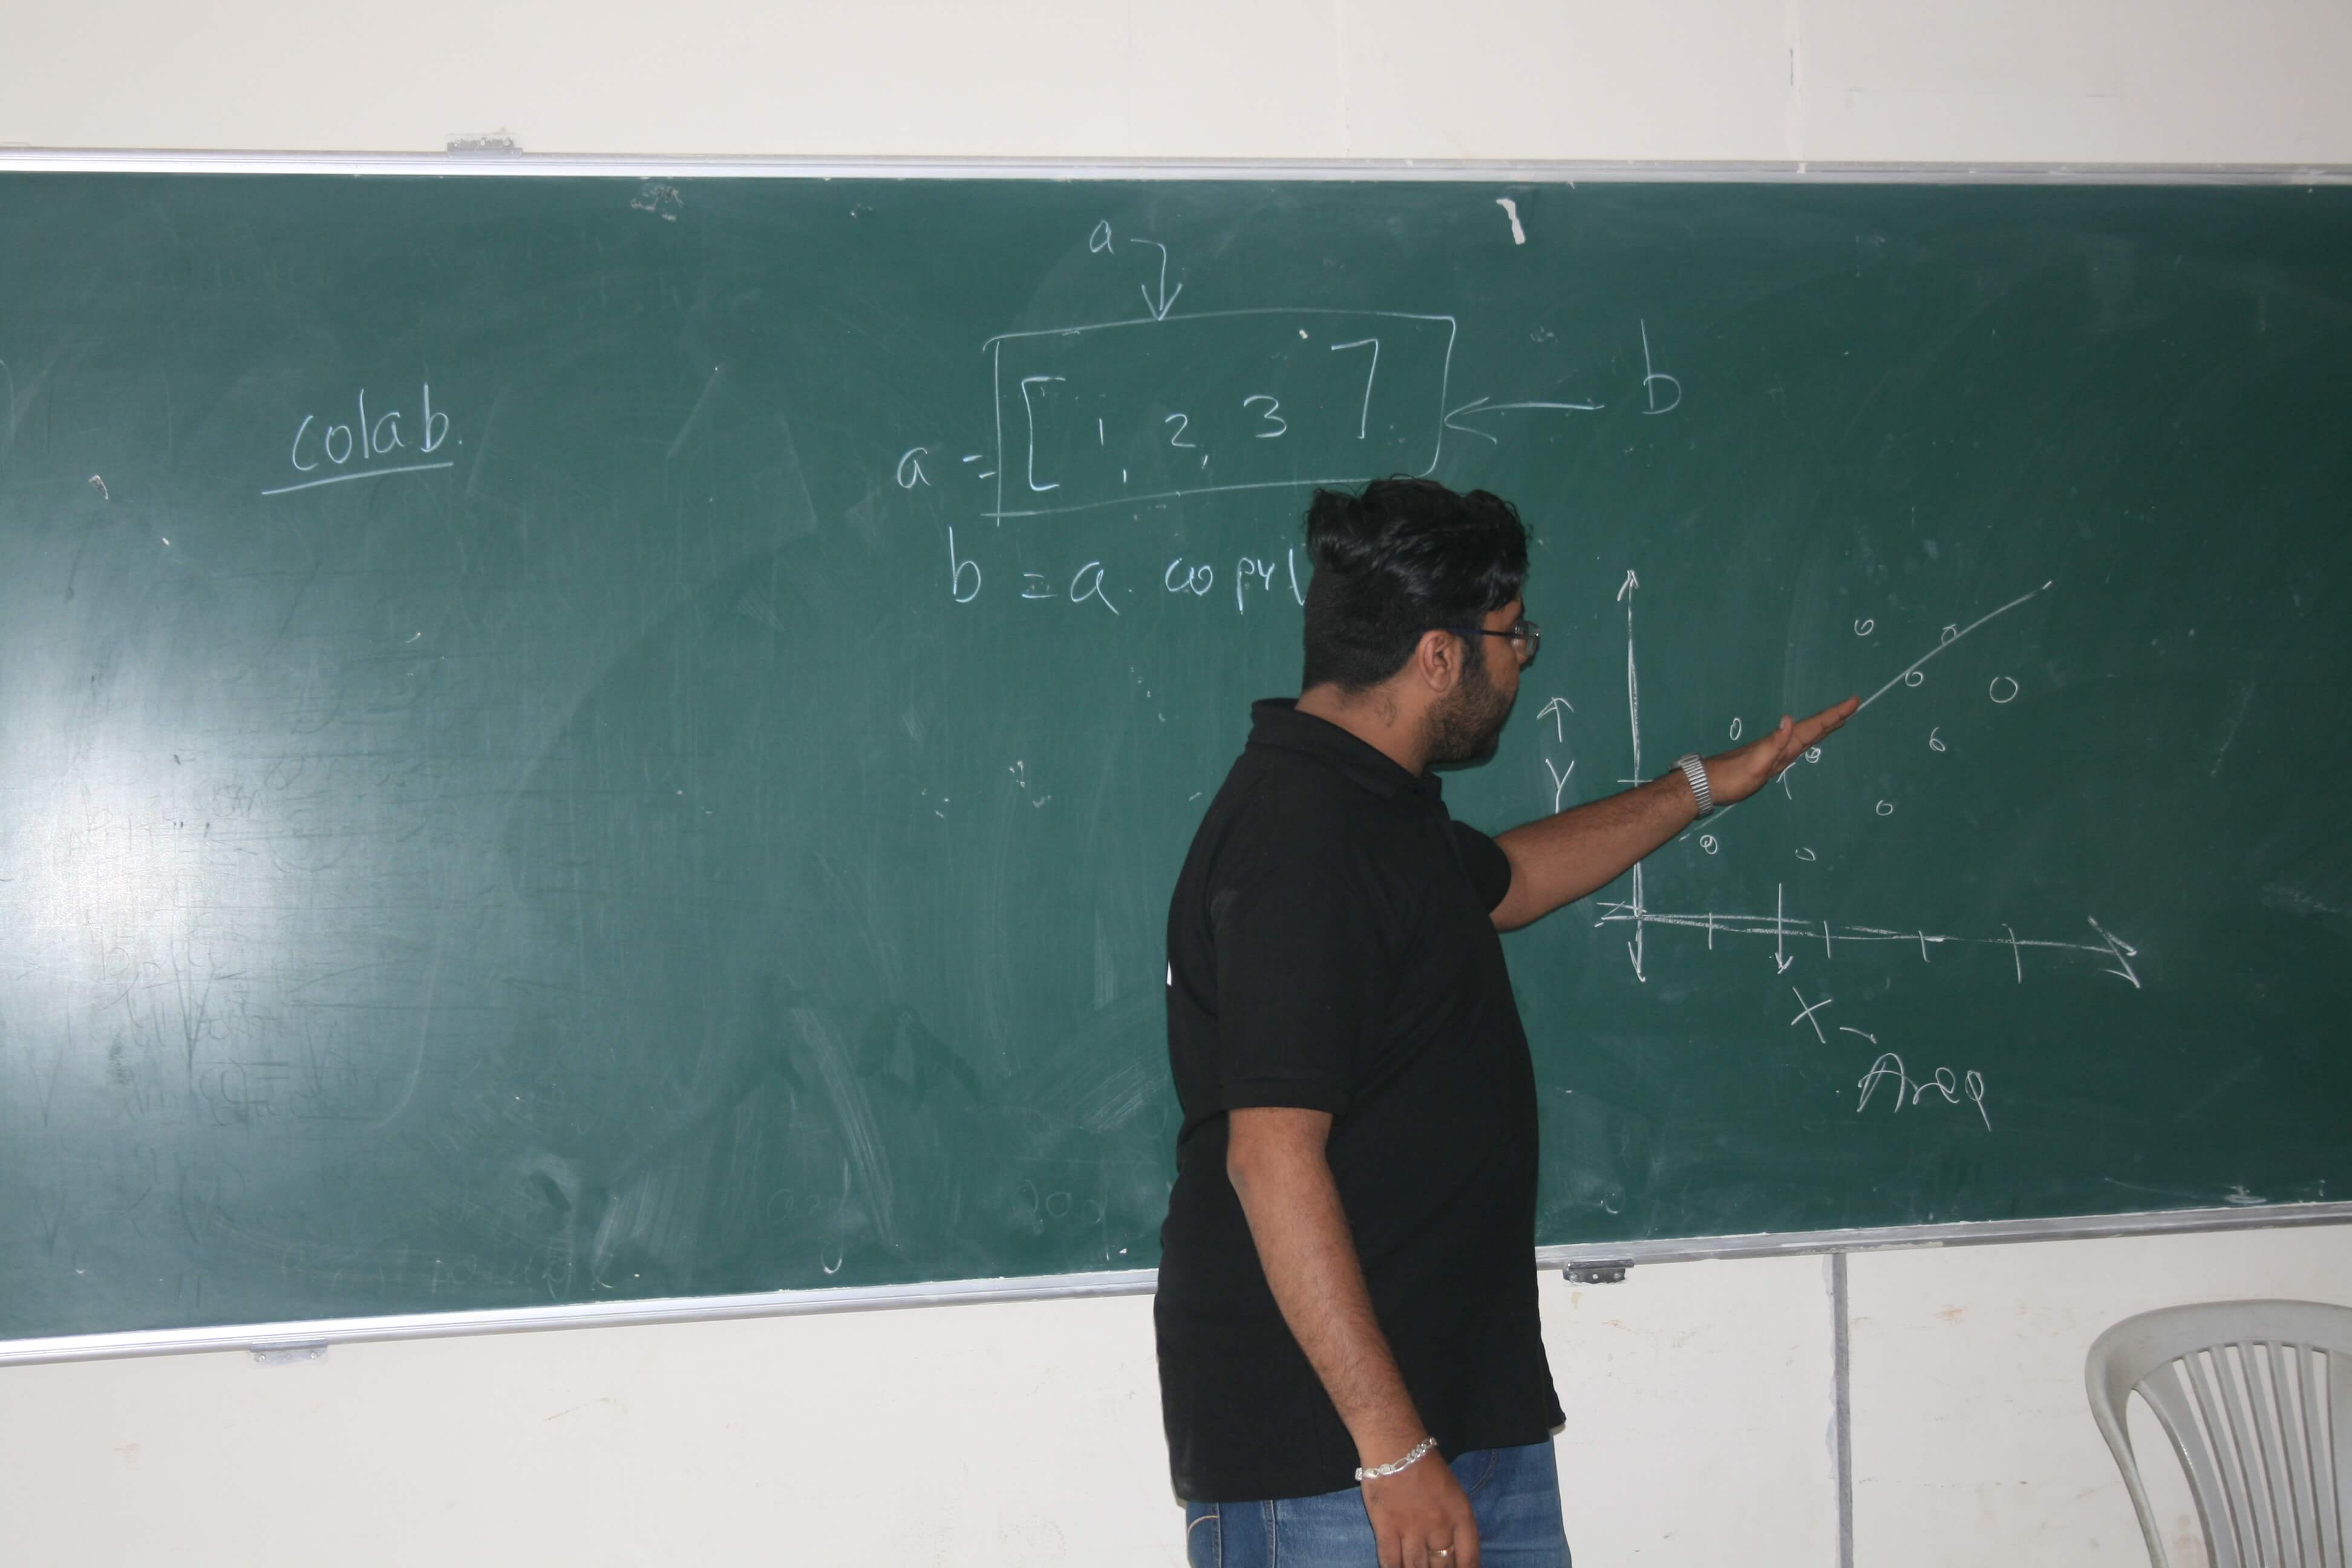 colab.
a
a = [ 1, 2, 3 ]
b
b = a. copy(
Y
X
Area